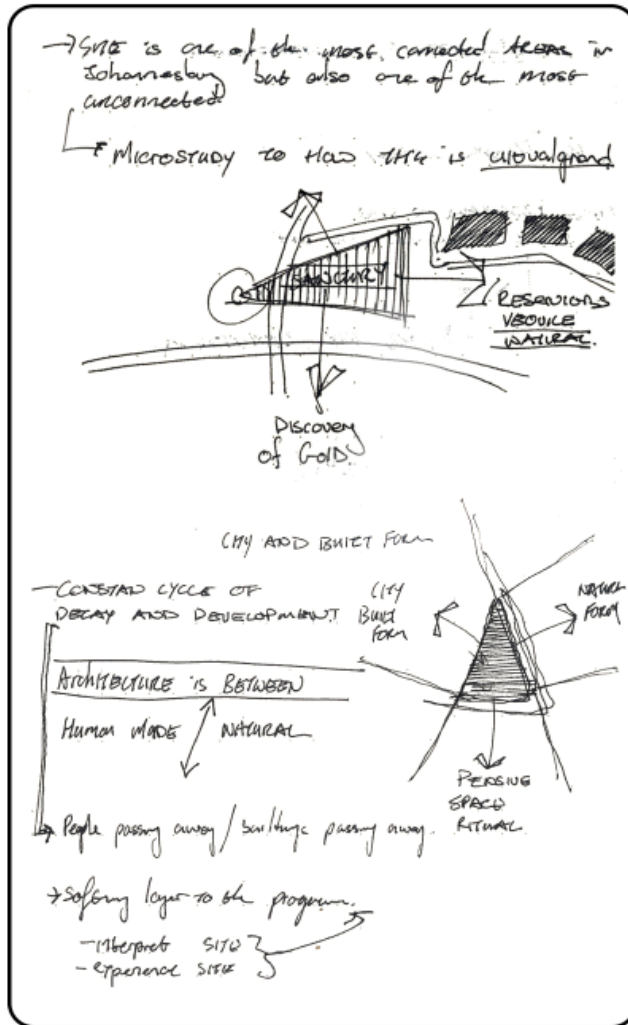 → SITE is one of the most connected AREAS in
Johannesburg but also one of the most
unconnected.
MICROSTUDY to HOW this is
SANCTURY
RESERVIORS
VEHICLE
NATURAL.
DISCOVERY
of GOLD.
CITY AND BUILT FORM
- CONSTAN CYCLE OF
DECAY AND DEVELOPMENT
CITY
BUILT
FORM
NATURE
FORM
ARCHITECTURE is BETWEEN
Human MADE NATURAL
PENSIVE
SPACE
RITUAL
→ People passing away / buildings passing away.
→ Softning layer to the program.
- Interpret SITE
- experience SITE